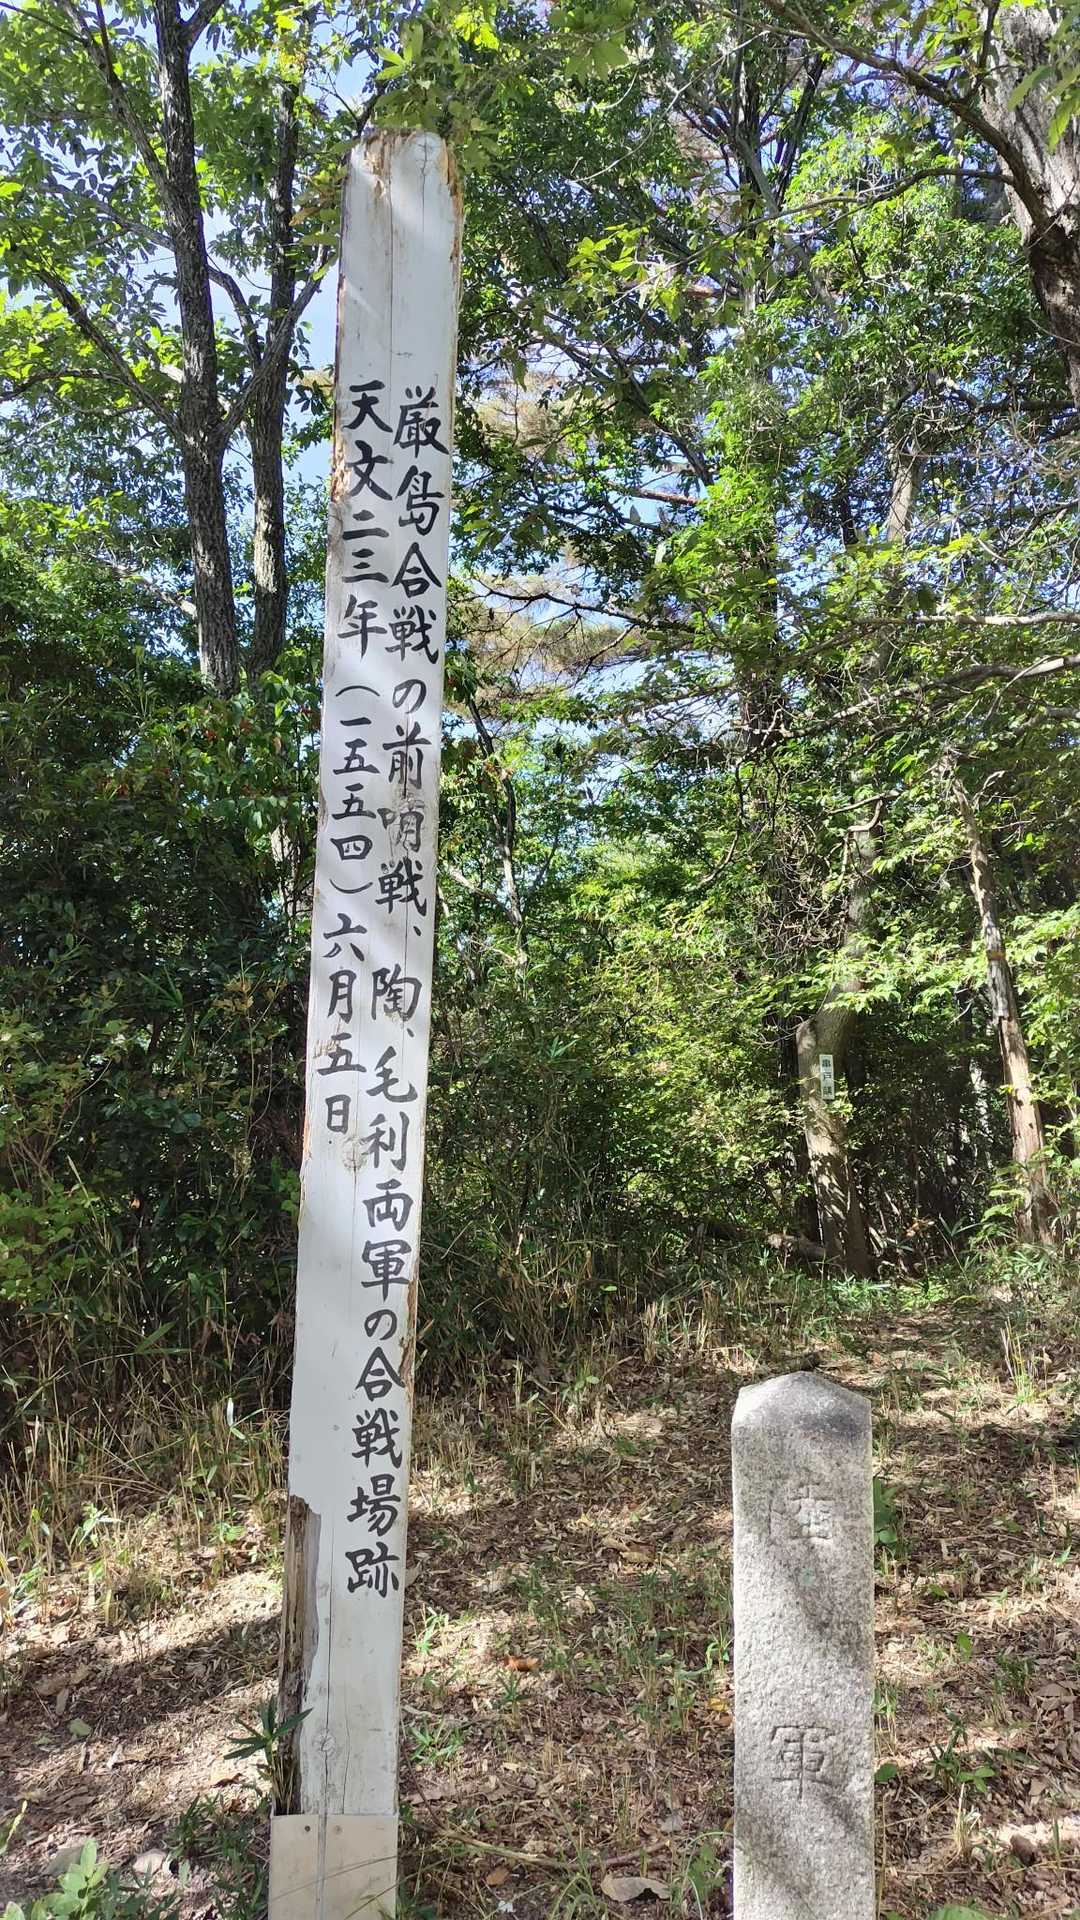 厳島合戦の前哨戦、陶、毛利両軍の合戦場跡
天文二三年（一五五四）六月五日
陸軍